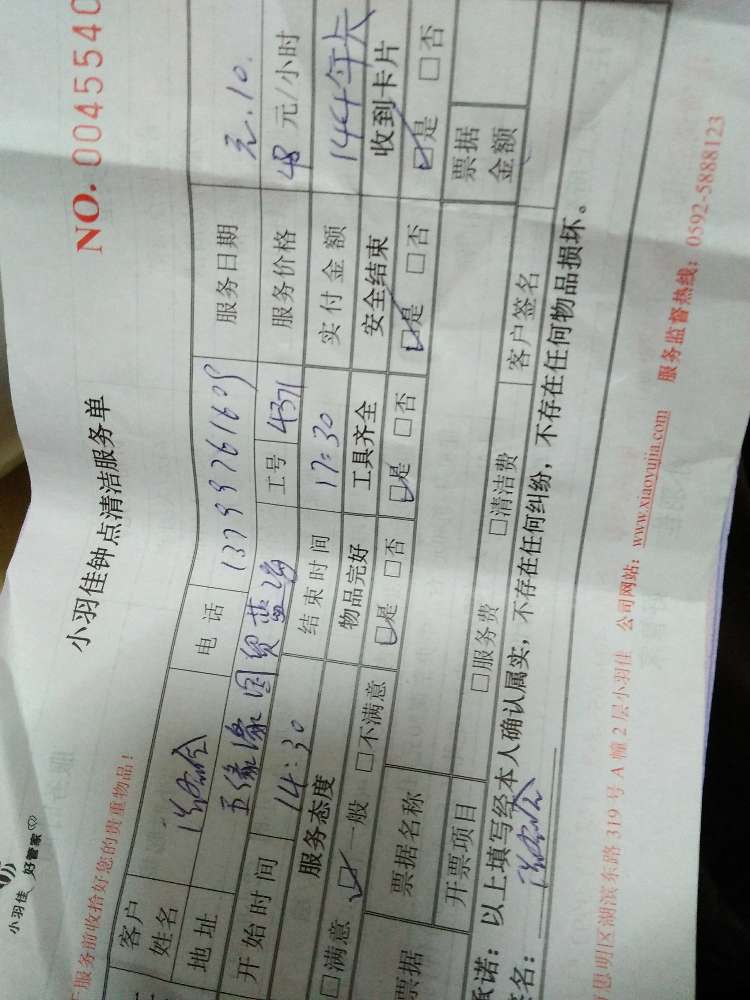 小羽佳 好管家
NO. 0045540
小羽佳钟点清洁服务单
服务前收拾好您的贵重物品!
客户姓名 电话 13799761609 服务日期 10.
地址 国贸蓝海 工号 4371 服务价格 48 元/小时
开始时间 14:30 结束时间 17:30 实付金额 144年卡
服务态度 物品完好 工具齐全 安全结束 收到卡片
□满意 □一般 □不满意 □是 □否 □是 □否 □是 □否 □是 □否
票据 票据名称 票据金额
开票项目 □服务费 □清洁费 客户签名
承诺:以上填写经本人确认属实,不存在任何纠纷,不存在任何物品损坏。
签名:
思明区湖滨东路 319 号 A 幢 2 层小羽佳 公司网站:www.xiaoyujia.com 服务监督热线:0592-5888123